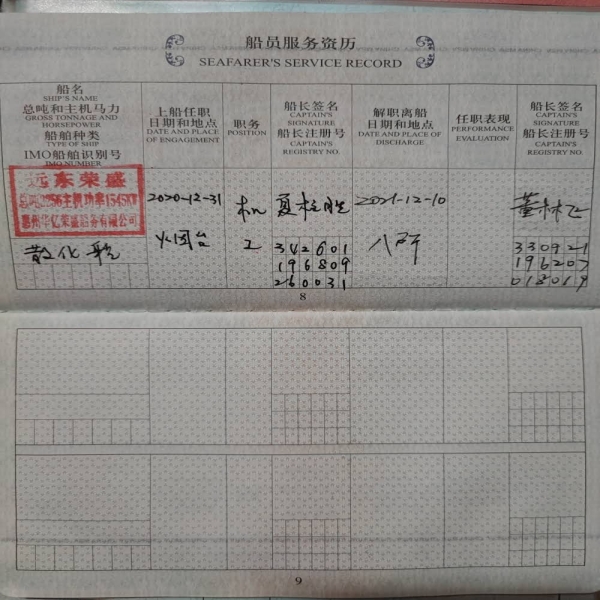 船员服务资历
SEAFARER'S SERVICE RECORD
船名
SHIP'S NAME
总吨和主机马力
GROSS TONNAGE AND
HORSEPOWER
船舶种类
TYPE OF SHIP
IMO船舶识别号
IMO NUMBER
上船任职
日期和地点
DATE AND PLACE
OF ENGAGEMENT
职务
POSITION
船长签名
CAPTAIN'S
SIGNATURE
船长注册号
CAPTAIN'S
REGISTRY NO.
解职离船
日期和地点
DATE AND PLACE OF
DISCHARGE
任职表现
PERFORMANCE
EVALUATION
船长签名
CAPTAIN'S
SIGNATURE
船长注册号
CAPTAIN'S
REGISTRY NO.
远东荣盛
总吨2256主机功率1545KW
惠州华亿荣盛船务有限公司
散化船
2020-12-31
机
工
342601
196809
260031
2021-12-10
八所
董林飞
330921
196207
018019
8
9